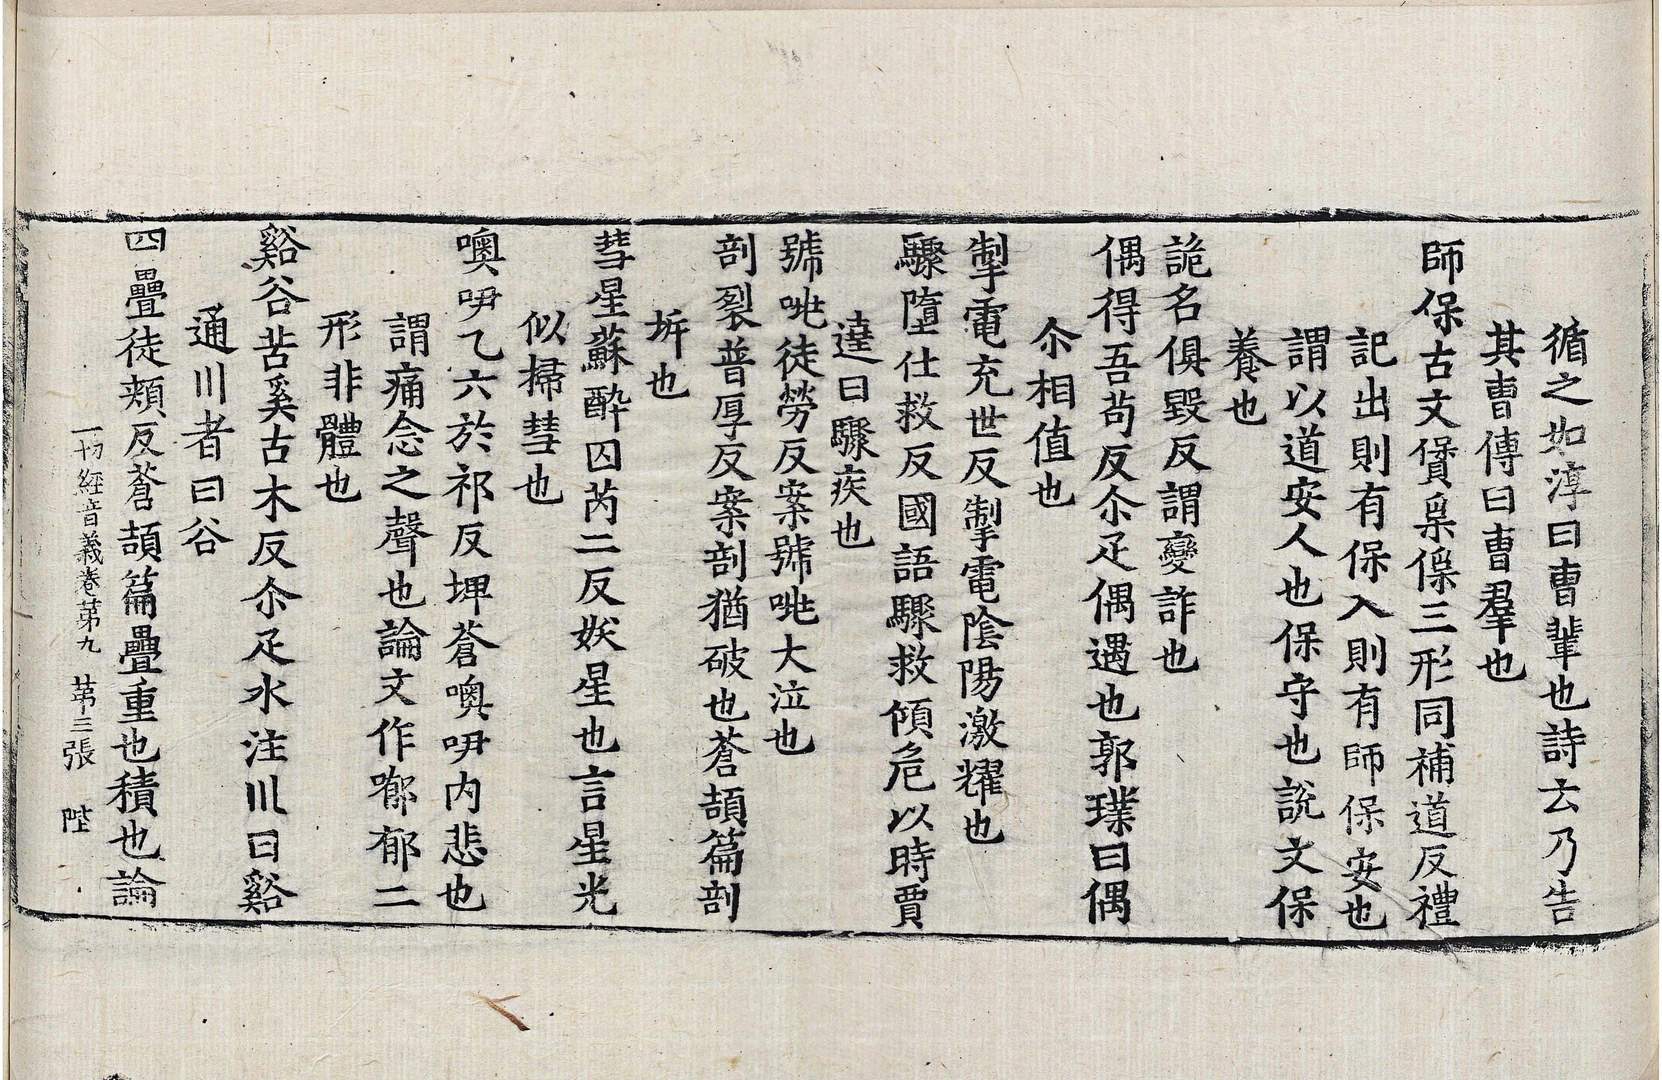 循之如淳曰曺輩也詩云乃告
其曺傳曰曺羣也
師保古文𠊻𣎼保三形同補道反禮
記出則有保入則有師保安也
謂以道安人也保守也說文保
養也
詭名俱毀反謂變詐也
偶得吾苟反尒疋偶遇也郭璞曰偶
尒相值也
掣電充世反掣電陰陽激耀也
驟墮仕救反國語驟救傾危以時賈
逵曰驟疾也
號咷徒勞反案號咷大泣也
剖裂普厚反案剖猶破也蒼頡篇剖
㭊也
彗星蘇醉囚芮二反妖星也言星光
似掃彗也
噢咿乙六於祁反埤蒼噢咿内悲也
謂痛念之聲也論文作㗱郁二
形非體也
谿谷苦奚古木反尒疋水注川曰谿
通川者曰谷
四疊徒頰反蒼頡篇疊重也積也論
一切經音義卷苐九 苐三張 陛